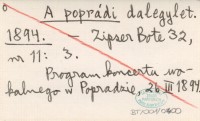 A poprádi dalegylet.
1894. – Zipser Bote 32,
nr 11: 3.
Program koncertu wo-
kalnego w Popradzie, 26 III 1894.